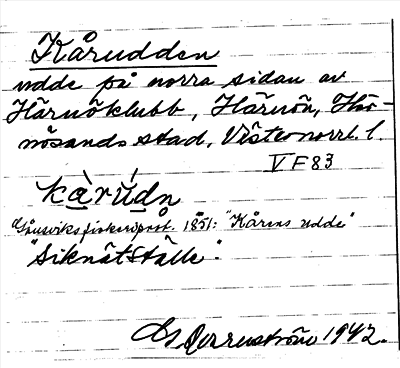 Kårudden
udde på norra sidan av
Härnöklubb, Härnön, Här-
nösands stad, Västernorrl. l.
V F 83
kàrúdn
fiskeriprot. 1851: "Kårens udde"
"Siknätställe".
1942.